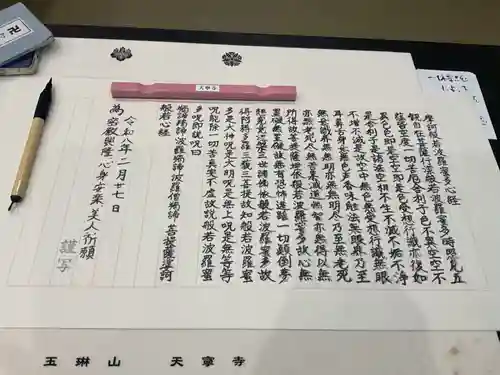 摩訶般若波羅蜜多心経
観自在菩薩行深般若波羅蜜多時照見五
蘊皆空度一切苦厄舎利子色不異空空不
異色色即是空空即是色受想行識亦復如
是舎利子是諸法空相不生不滅不垢不浄
不増不減是故空中無色無受想行識無眼
耳鼻舌身意無色声香味触法無眼界乃至
無意識界無無明亦無無明尽乃至無老死
亦無老死尽無苦集滅道無智亦無得以無
所得故菩提薩埵依般若波羅蜜多故心無
罣礙無罣礙故無有恐怖遠離一切顛倒夢
想究竟涅槃三世諸佛依般若波羅蜜多故
得阿耨多羅三藐三菩提故知般若波羅蜜
多是大神呪是大明呪是無上呪是無等等
呪能除一切苦真実不虚故説般若波羅蜜
多呪即説呪曰
羯諦羯諦 波羅羯諦 波羅僧羯諦 菩提薩婆訶
般若心経
令和六年二月廿七日
為 密厳興隆、心身安楽、美人祈願
謹写
天寧寺
玉琳山 天寧寺